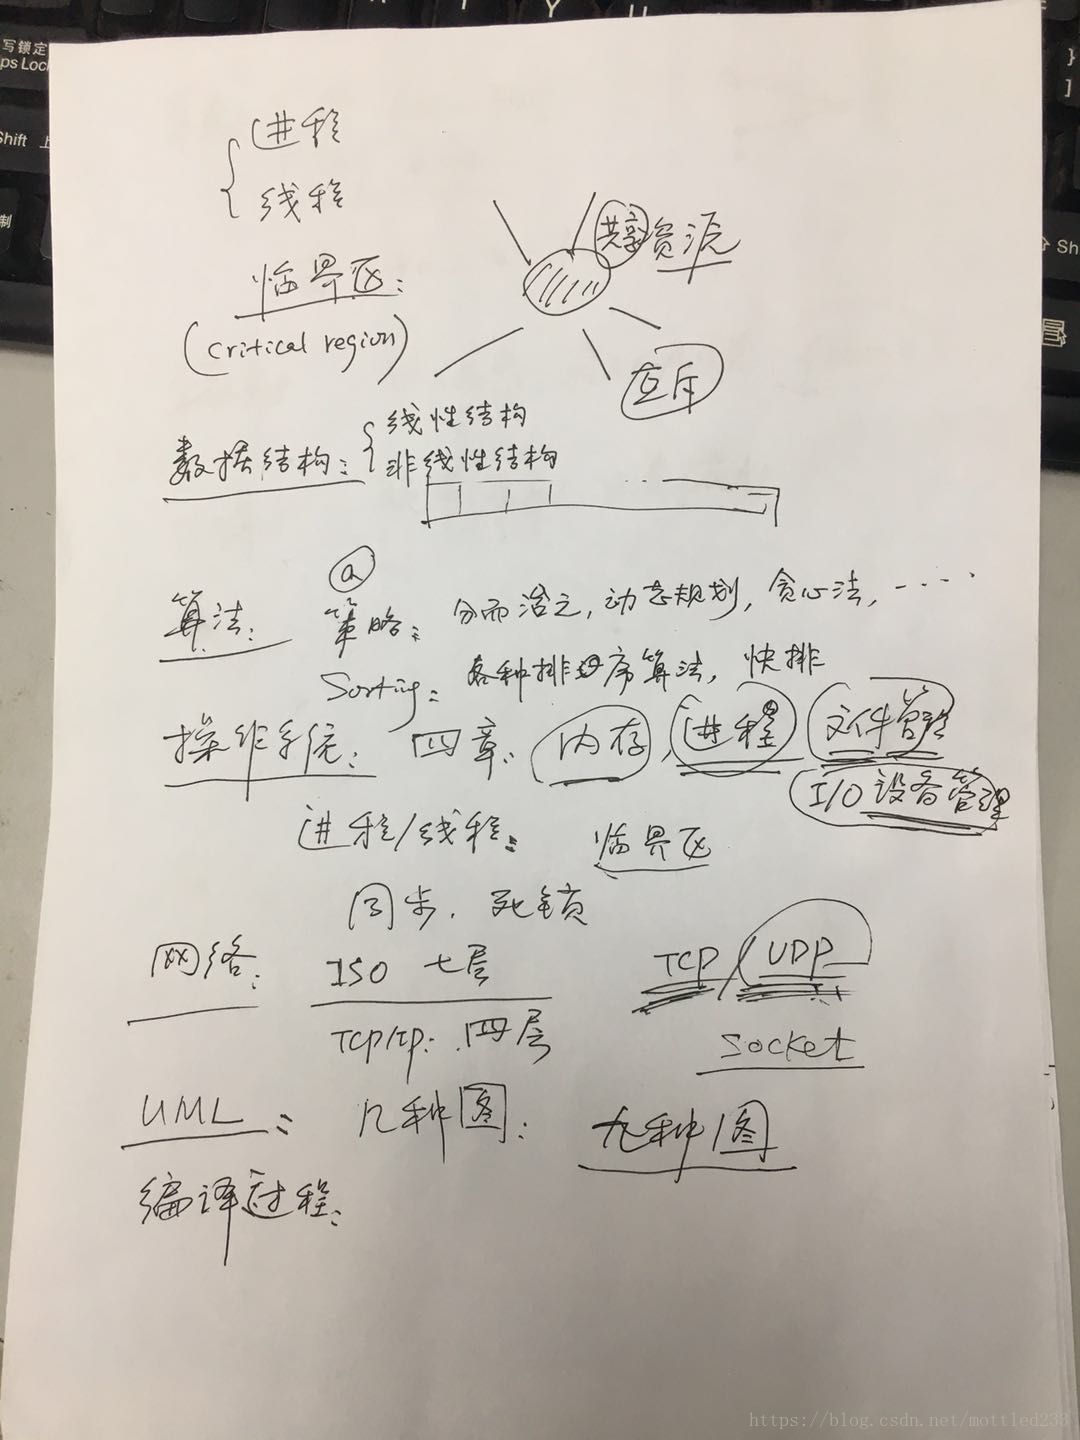 进程
线程
共享资源
临界区:
(critical region)
互斥
线性结构
数据结构:
非线性结构
a
算法: 策略: 分而治之, 动态规划, 贪心法, ·····
Sorting: 各种排序算法, 快排
操作系统: 四章: 内存, 进程 文件管理
I/O 设备管理
进程/线程: 临界区
同步. 死锁
网络: ISO 七层 TCP/UDP
TCP/IP: 四层 socket
UML: 几种图: 九种图
编译过程:
写锁定
ps Loc
Shift 上
制
T Y U
Sh
}
]
https://blog.csdn.net/mottled233